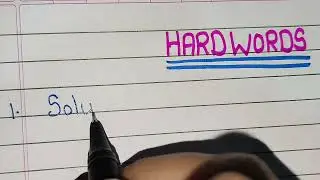 HARD WORDS
1. Solu